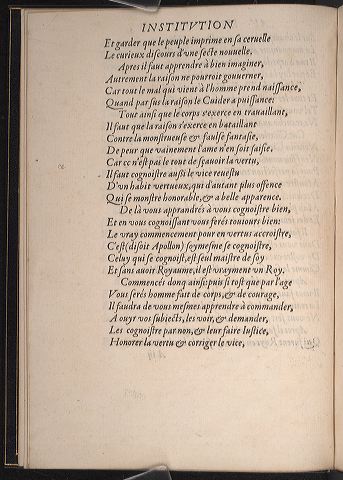 INSTITVTION
Et garder que le peuple imprime en sa ceruelle
Le curieux discours d'vne secte nouuelle.
Apres il faut apprendre à bien imaginer,
Autrement la raison ne pourroit gouuerner,
Car tout le mal qui vient à l'homme prend naissance,
Quand par sus la raison le Cuider a puissance:
Tout ainsi que le corps s'exerce en trauaillant,
Il faut que la raison s'exerce en bataillant
Contre la monstrueuse & faulse fantasie,
De peur que vainement l'ame n'en soit saisie.
Car ce n'est pas le tout de sçauoir la vertu,
Il faut cognoistre aussi le vice reuestu
D'vn habit vertueux, qui d'autant plus offence
Qui se monstre honorable, & a belle apparence.
De là vous apprandrés à vous cognoistre bien,
Et en vous cognoissant vous ferés tousiours bien:
Le vray commencement pour en vertus accroistre,
C'est (disoit Apollon) soymesme se cognoistre,
Celuy qui se cognoist, est seul maistre de soy
Et sans auoir Royaume, il est vrayment vn Roy.
Commencés donq ainsi: puis si tost que par l'age
Vous serés homme fait de corps, & de courage,
Il faudra de vous mesmes apprendre à commander,
A ouyr vos subiects, les voir, & demander,
Les cognoistre par non, & leur faire Iustice,
Honorer la vertu & corriger le vice,